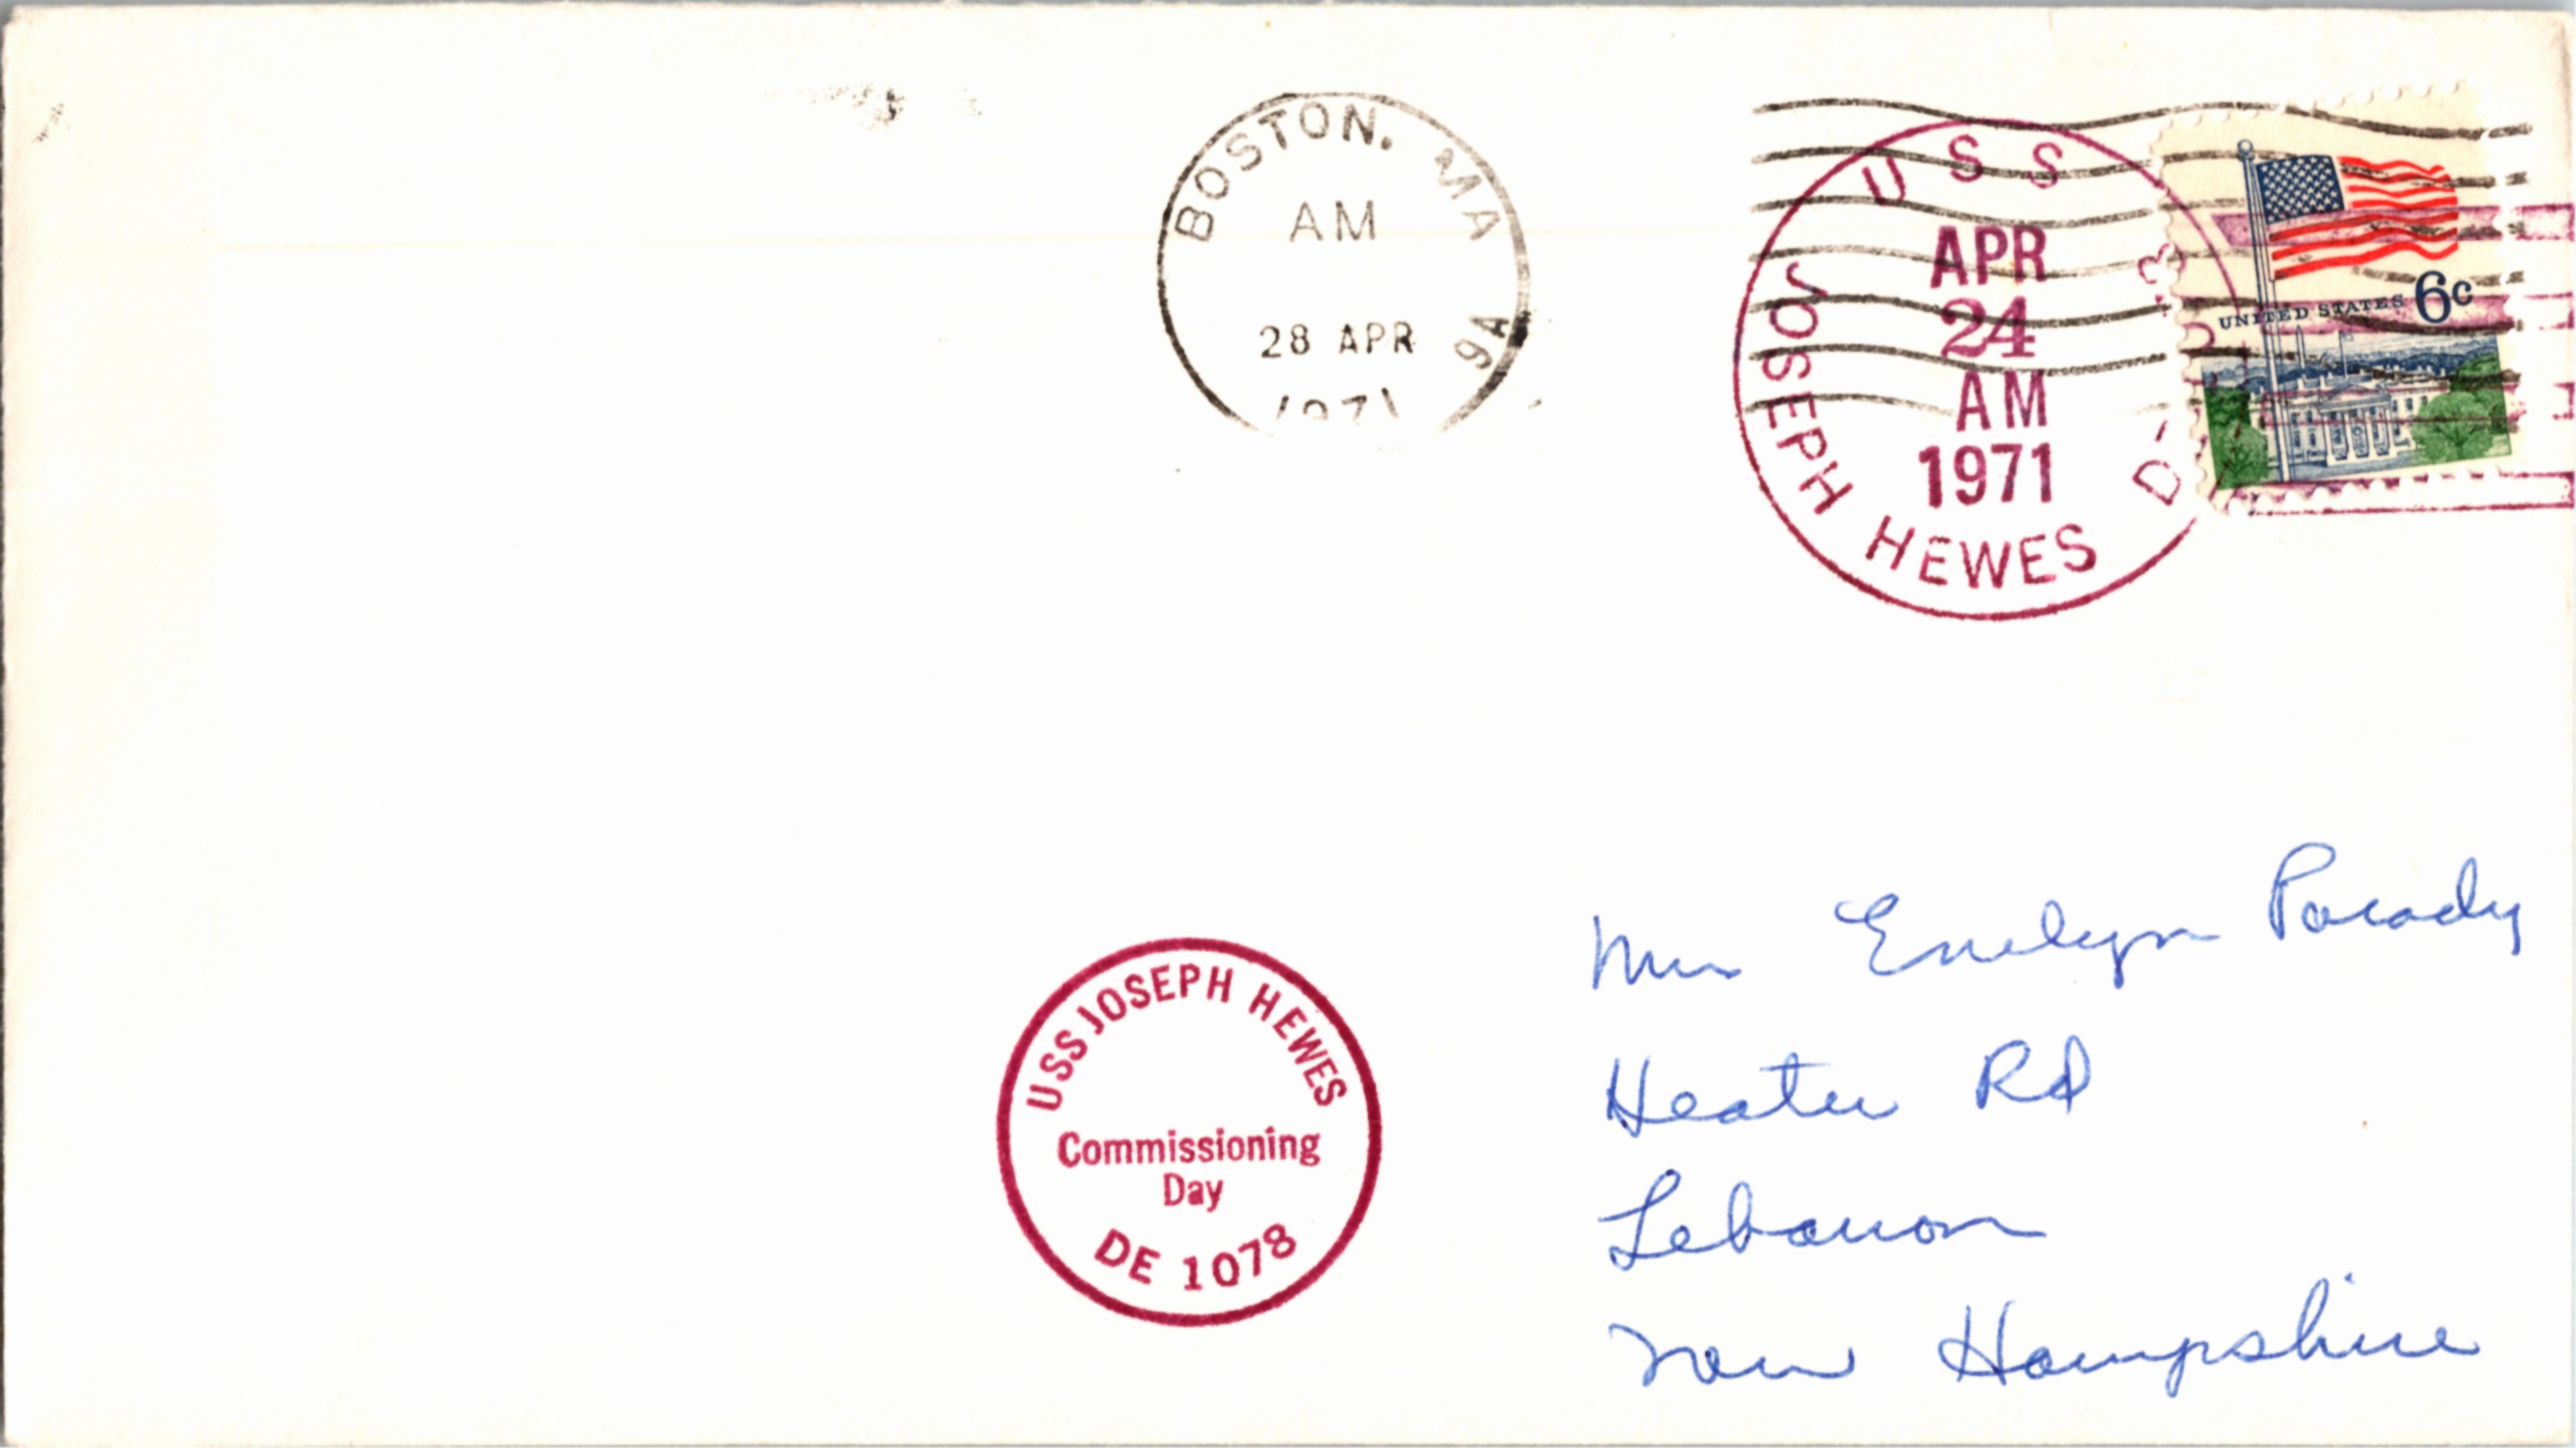 BOSTON, MA
AM
28 APR
1971
9A
USS
JOSEPH HEWES
APR
24
AM
1971
UNITED STATES 6c
USS JOSEPH HEWES
Commissioning
Day
DE 1078
Mrs Evelyn Parady
Heater Rd
Lebanon
New Hampshire